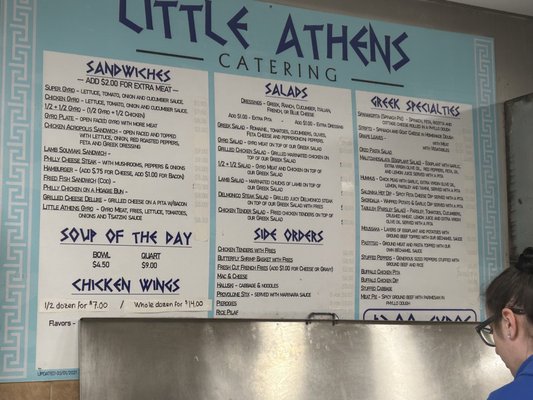 Little Athens
CATERING
Sandwiches
- ADD $2.00 FOR EXTRA MEAT -
Super Gyro - lettuce, tomato, onion and cucumber sauce
Chicken Gyro - lettuce, tomato, onion and cucumber sauce
1/2 + 1/2 Gyro - (1/2 Gyro + 1/2 Chicken)
Gyro Plate - open faced gyro with more meat
Chicken Acropolis Sandwich - open faced and topped
with lettuce, onion, red roasted peppers,
feta and greek dressing
Lamb Souvlaki Sandwich -
Philly Cheese Steak - with mushrooms, peppers & onions
Hamburger - (add $.75 for Cheese, add $1.00 for Bacon)
Fried Fish Sandwich (Cod) -
Philly Chicken on a Hoagie Bun -
Grilled Cheese Deluxe - grilled cheese on a pita w/bacon
Little Athens Gyro - meat, fries, lettuce, tomatoes,
onions and tzatziki sauce
Soup of the Day
BOWL QUART
$4.50 $9.00
Chicken Wings
1/2 dozen for $7.00 / Whole dozen for $14.00
Flavors -
UPDATED
Salads
Dressings - Greek, Ranch, Cucumber, Italian,
French, or Blue Cheese
Add $1.00 - Extra Pita Add $1.00 - Extra Dressings
Greek Salad - Romaine, tomatoes, cucumbers, olives,
feta cheese and pepperoncini peppers.
Gyro Salad - Gyro meat on top of our Greek Salad
Grilled Chicken Salad - Grilled marinated chicken on
top of our Greek Salad
1/2 + 1/2 Salad - Gyro Meat and Chicken on top of
our Greek Salad
Lamb Salad - marinated chunks of lamb on top of
our Greek Salad
Delmonico Steak Salad - Grilled juicy Delmonico steak
on top of our Greek Salad
Greek Salad with fries
Chicken Tender Salad - Fried chicken tenders on top
of our Greek Salad
Side Orders
Chicken Tenders with Fries
Butterfly Shrimp Basket with Fries
Fresh Cut French Fries (add $1.00 for Cheese or Gravy)
Mac & Cheese
Haluski - cabbage & noodles
Provolone Stix - served with marinara sauce
Pierogies
Rice Pilaf
Greek Specialties
Spanakopita (Spinach Pie) - Spinach, feta, ricotta and
cottage cheese rolled in a phyllo dough
Grape Leaves -
with meat
with Vegetables
Orzo Pasta Salad
Melitzanosalata (Eggplant Salad) - Eggplant with garlic,
extra virgin olive oil, red peppers, feta,
and lemon juice served with a pita
Hummus - Chick peas with garlic, extra virgin olive oil,
lemon, parsley and tahini, served with a pita
Skordalia - Whipped potato & garlic dip served with pita
Tabouli (Parsley Salad) - Parsley, tomatoes, cucumbers,
Moussaka - layers of eggplant and potatoes with
ground beef topped with our own béchamel sauce
Pastitsio - ground meat and pasta topped with our
own béchamel sauce
Stuffed Peppers - generous sized peppers stuffed with
ground beef and rice
Buffalo Chicken Pita
Buffalo Chicken Dip
Stuffed Cabbage
Meat Pie - spicy ground beef with parmesan in
phyllo dough